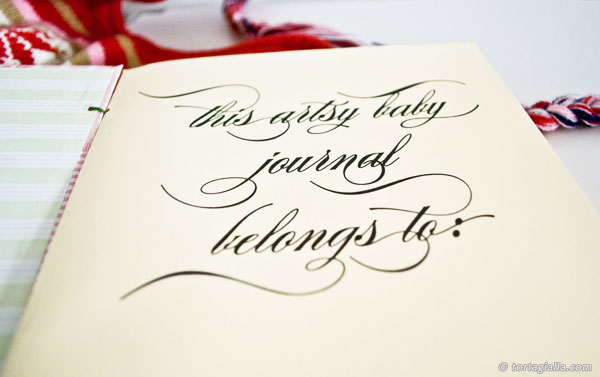 this artsy baby
journal
belongs to:
© tortagialla.com